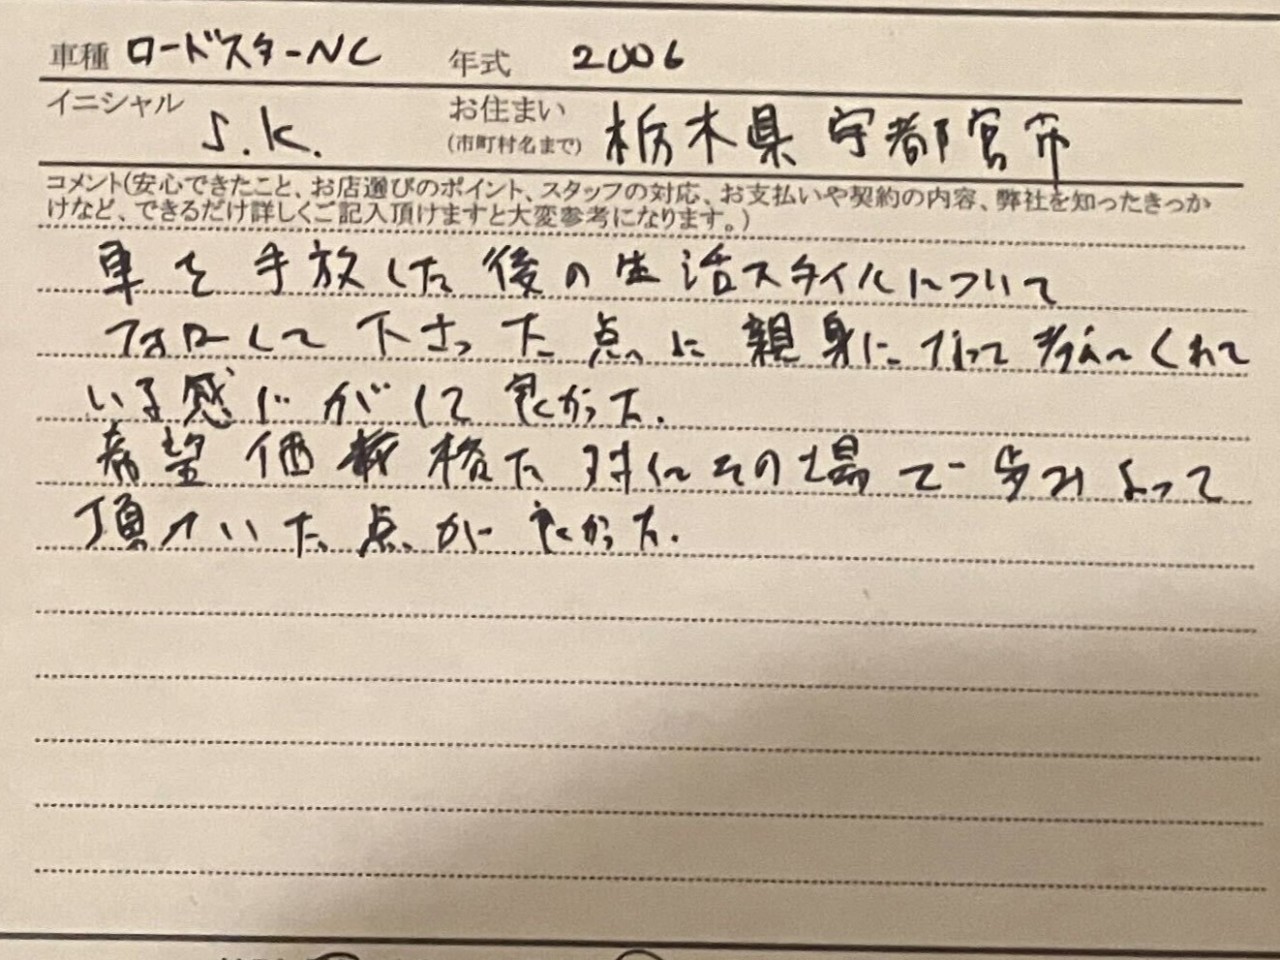 車種 ロードスターNC 年式 2006
イニシャル S.K. お住まい(市町村名まで) 栃木県 宇都宮市
コメント(安心できたこと、お店選びのポイント、スタッフの対応、お支払いや契約の内容、弊社を知ったきっか
けなど、できるだけ詳しくご記入頂けますと大変参考になります。)
車を手放した後の生活スタイルについて
フォローして下さった点に親身になって考えてくれて
いる感じがして良かった.
希望価格に対してその場で歩みよって
頂いた点が良かった.